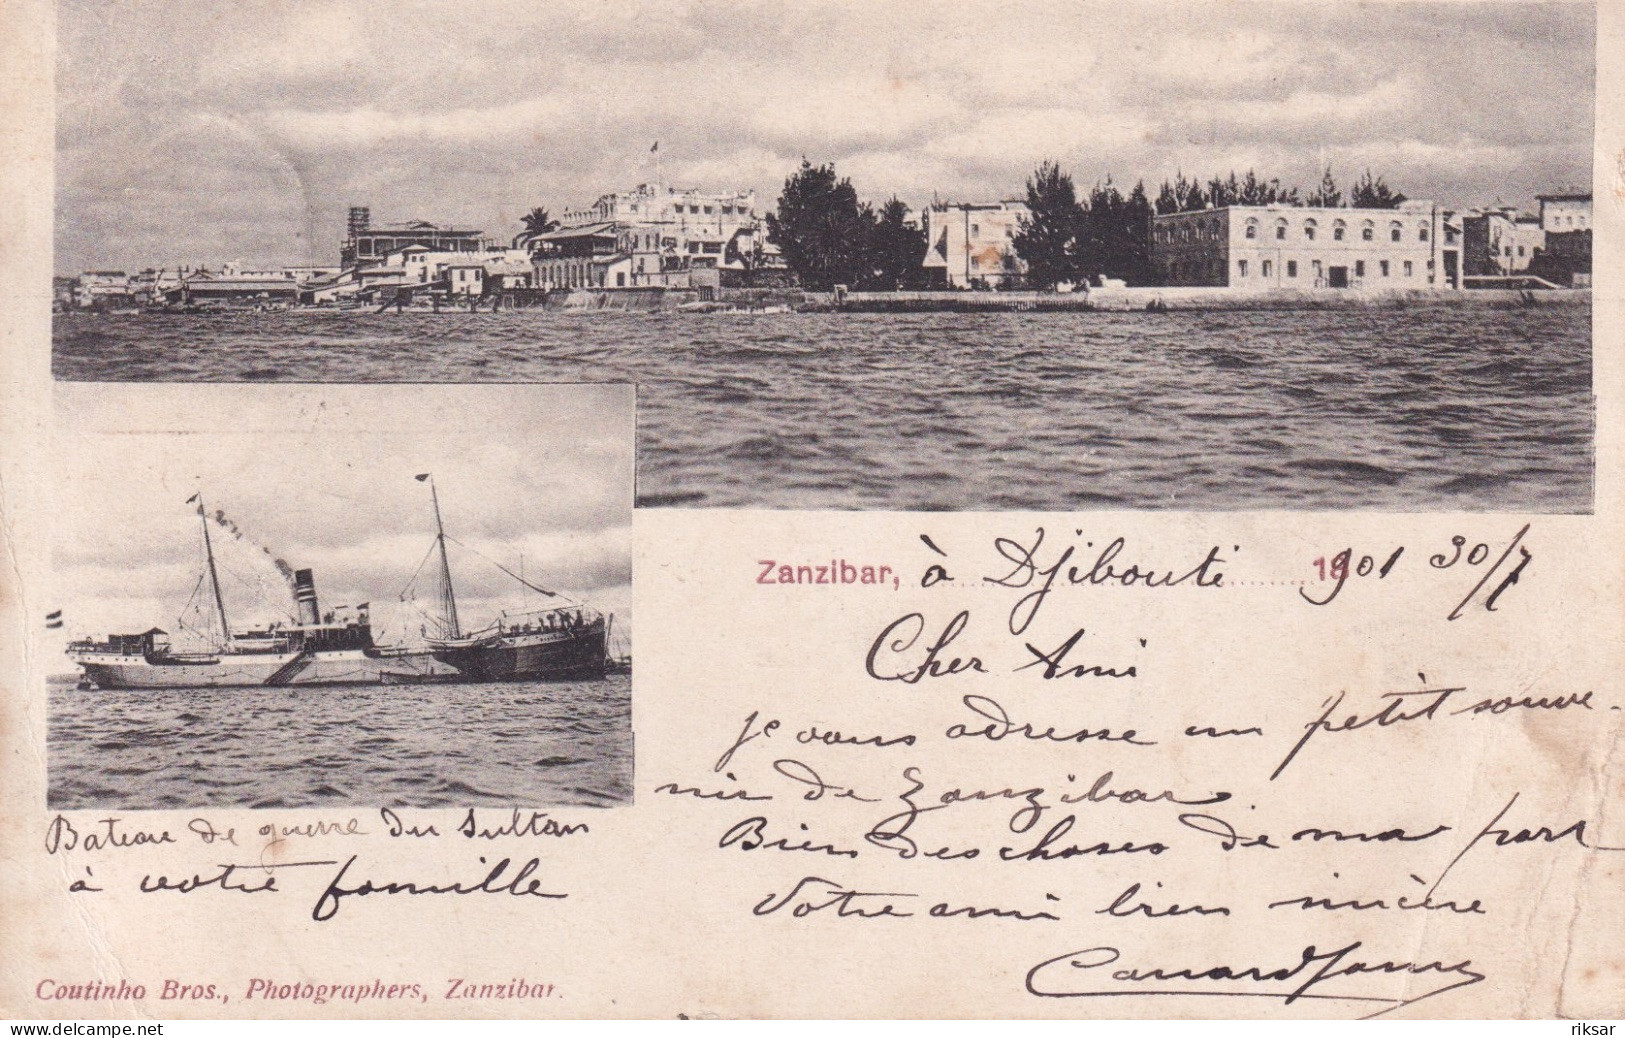 Zanzibar, à Djibouti 1901 30/7
Cher Ami
je vous adresse un petit souve-
nir de Zanzibar.
Bien des choses de ma part
Votre ami bien sincère
Bateau de guerre du Sultan
à votre famille
Coutinho Bros., Photographers, Zanzibar.
delcampe.net
riksar